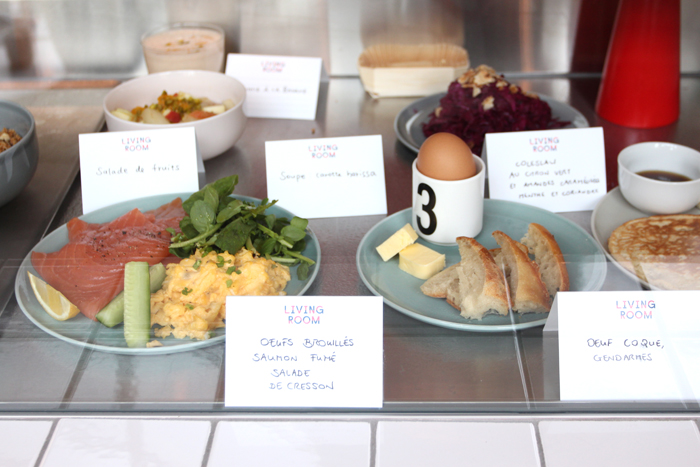 LIVING
ROOM
LIVING
ROOM
Salade de fruits
LIVING
ROOM
Soupe
LIVING
ROOM
COLESLAW
AU CITRON VERT
ET AMANDES CARAMÉLISÉES
MENTHE ET CORIANDRE
3
LIVING
ROOM
OEUFS BROUILLÉS
SAUMON FUMÉ
SALADE
DE CRESSON
LIVING
ROOM
OEUF COQUE,
GENDARMES